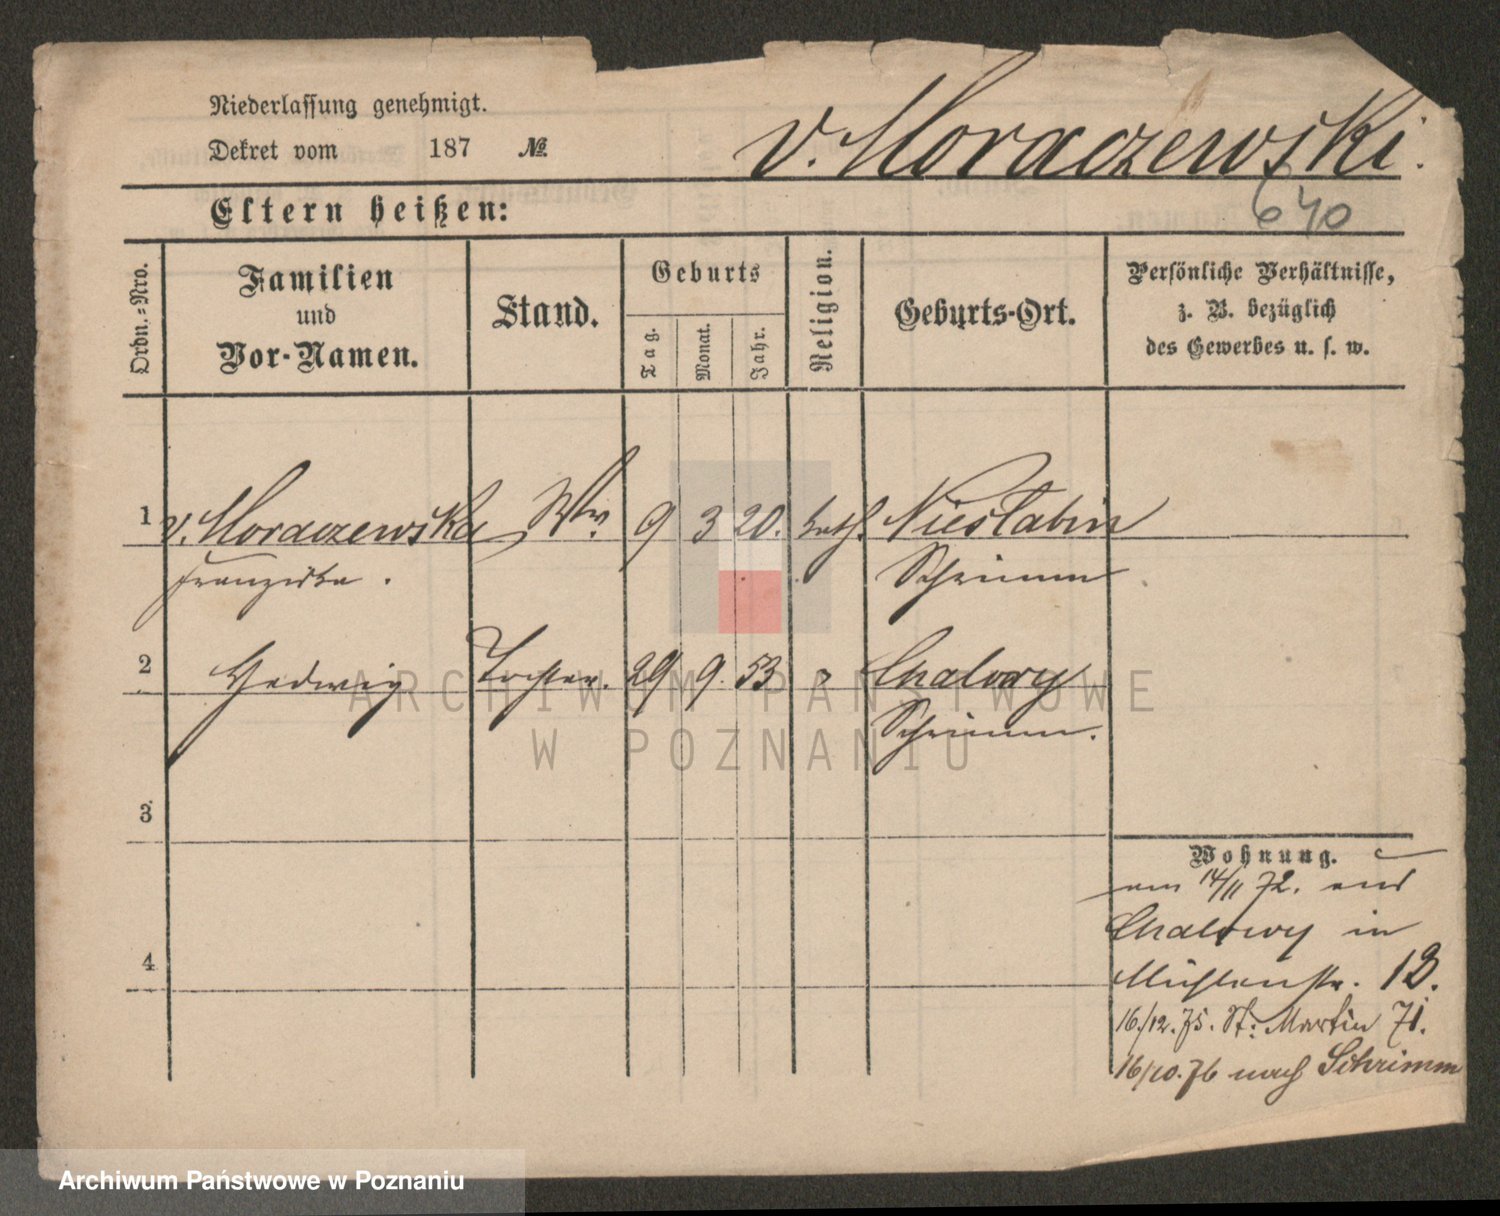 Niederlassung genehmigt.
Dekret vom 187 №
v. Moraczewski.
640
Eltern heißen:
Ordn.-Nro.
Familien
und
Vor-Namen.
Stand.
Geburts
Tag.
Monat.
Jahr.
Religion.
Geburts-Ort.
Persönliche Verhältnisse,
z. B. bezüglich
des Gewerbes u. s. w.
1 v. Moraczewska Ww. 9 3 20. kath. Nieslabin
Franziska. Schrimm
2 Hedwig Tochter. 29 9. 53 " Chalowy
Schrimm.
3
4
Wohnung.
am 14/11 72. aus
Chalowy in
Mühlenstr. 13.
16./12. 75. St: Martin 71.
16/10. 76 nach Schrimm
ARCHIWUM PAŃSTWOWE
W POZNANIU
Archiwum Państwowe w Poznaniu